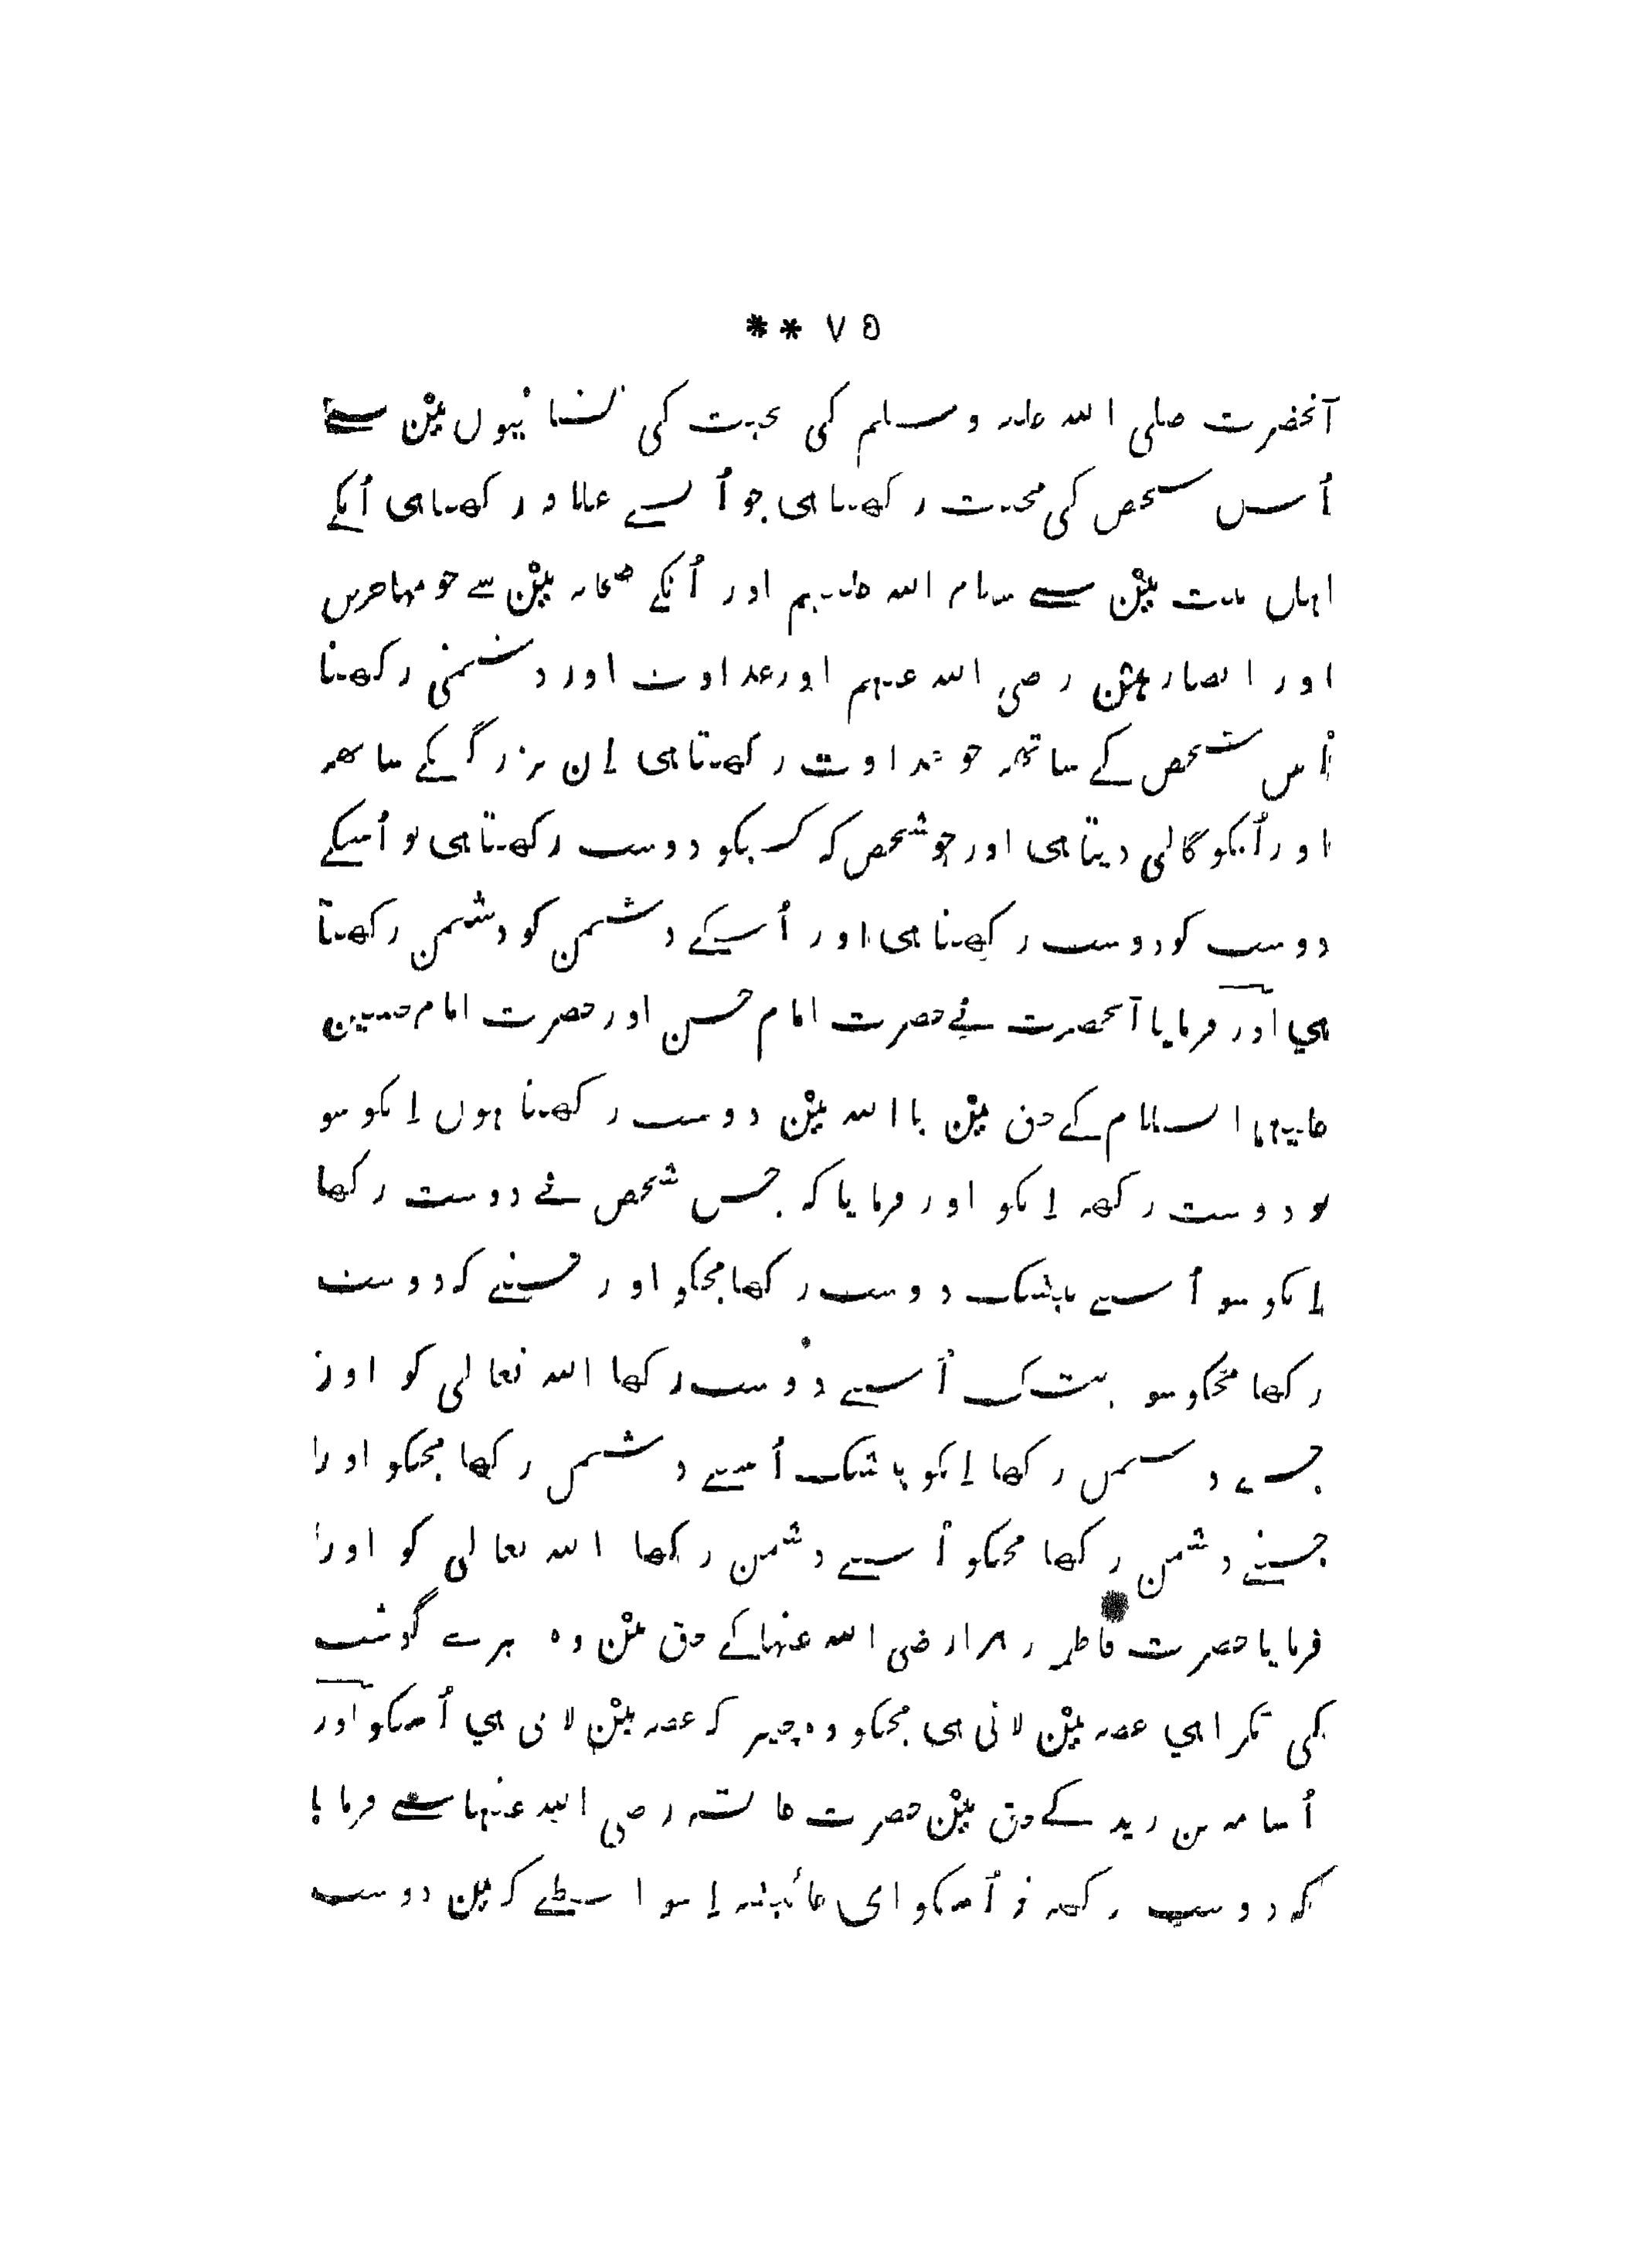 ** ۷۵
آنحضرت صلی الله علیہ وسلم کی محبت کی نشانیوں مین سے
اُس شخص کی محبت رکھناہی جو اُسے علاقہ رکھتاہی اُنکے
اہل بیت مین سے سلام الله علیہم اور اُنکے صحابہ مین سے جو مہاجرین
اور انصار ہین رضی الله عنہم اور عداوت اور دشمنی رکھنا
اُس شخص کے ساتھہ جو عداوت رکھتاہی اِن بزرگ کے ساتھہ
اور اُنکو گالی دیتاہی اور جو شخص کہ کسیکو دوست رکھتاہی تو اُسکے
دوست کو دوست رکھتاہی اور اُسکے دشمن کو دشمن رکھتا
ہی اور فرمایا آنحضرت نے حضرت امام حسن اور حضرت امام حسین
علیہما السلام کے حق مین یا الله مین دوست رکھتا ہوں اِنکو سو
تو دوست رکھہ اِنکو اور فرمایا کہ جس شخص نے دوست رکھا
اِنکو سو اُسنے بیشک دوست رکھا مجکو اور جسنے کہ دوست
رکھا مجکو سو بیشک اُسنے دوست رکھا الله تعالی کو اور
جسنے دشمن رکھا اِنکو بیشک اُسنے دشمن رکھا مجکو اور
جسنے دشمن رکھا مجکو اُسنے دشمن رکھا الله تعالی کو اور
فرمایا حضرت فاطمہ زہرا رضی الله عنہا کے حق مین وہ میرے گوشت
کی ٹکرا ہی غصہ مین لاتی ہی مجکو وہ چیز کہ غصہ مین لاتی ہی اُسکو اور
اُسامہ بن زید کے حق مین حضرت عائشہ رضی الله عنہا سے فرمایا
کہ دوست رکھہ تو اُسکو ای عائیشہ اِسواسیطے کہ مین دوست